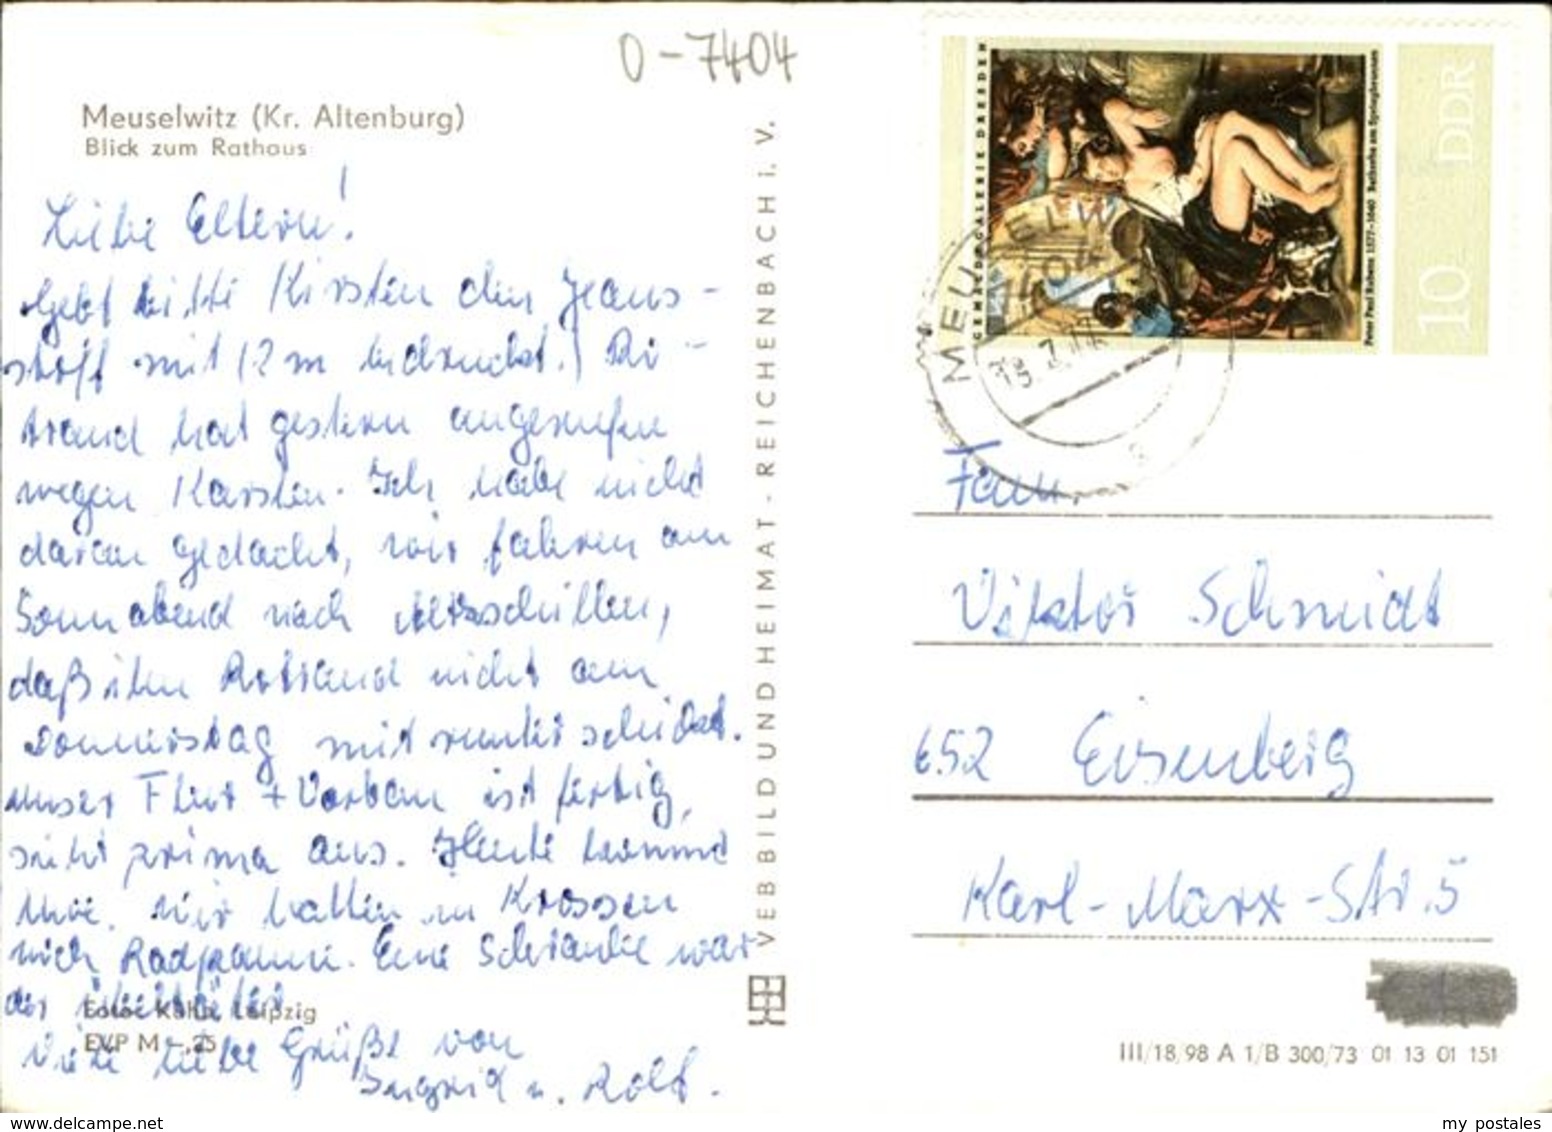 O-7404
Meuselwitz (Kr. Altenburg)
Blick zum Rathaus
Liebe Eltern!
Gebt bitte Kirsten den Jeans-
stoff mit (2 m bedruckt.)
hat gestern angerufen
wegen Karsten. Ich habe nicht
daran gedacht, wir fahren am
Sonnabend nach
daß ihn nicht am
Donnerstag mit runter schickt.
unser Flur + Vorbau ist fertig,
sieht prima aus. Heute kommt
wir hatten in Krossen
noch Radpanne. Eine Schraube war
der Übeltäter.
Foto: Kühn, Leipzig
EVP M -,25
Viele liebe Grüße von
Ingrid u. Rolf.
VEB BILD UND HEIMAT · REICHENBACH i. V.
GEMÄLDEGALERIE DRESDEN
Peter Paul Rubens 1577-1640 Bathseba am Springbrunnen
10 DDR
MEUSELW
Fam.
Viktor Schmidt
652 Eisenberg
Karl-Marx-Str. 5
III/18/98 A 1/B 300/73 01 13 01 151
my postales